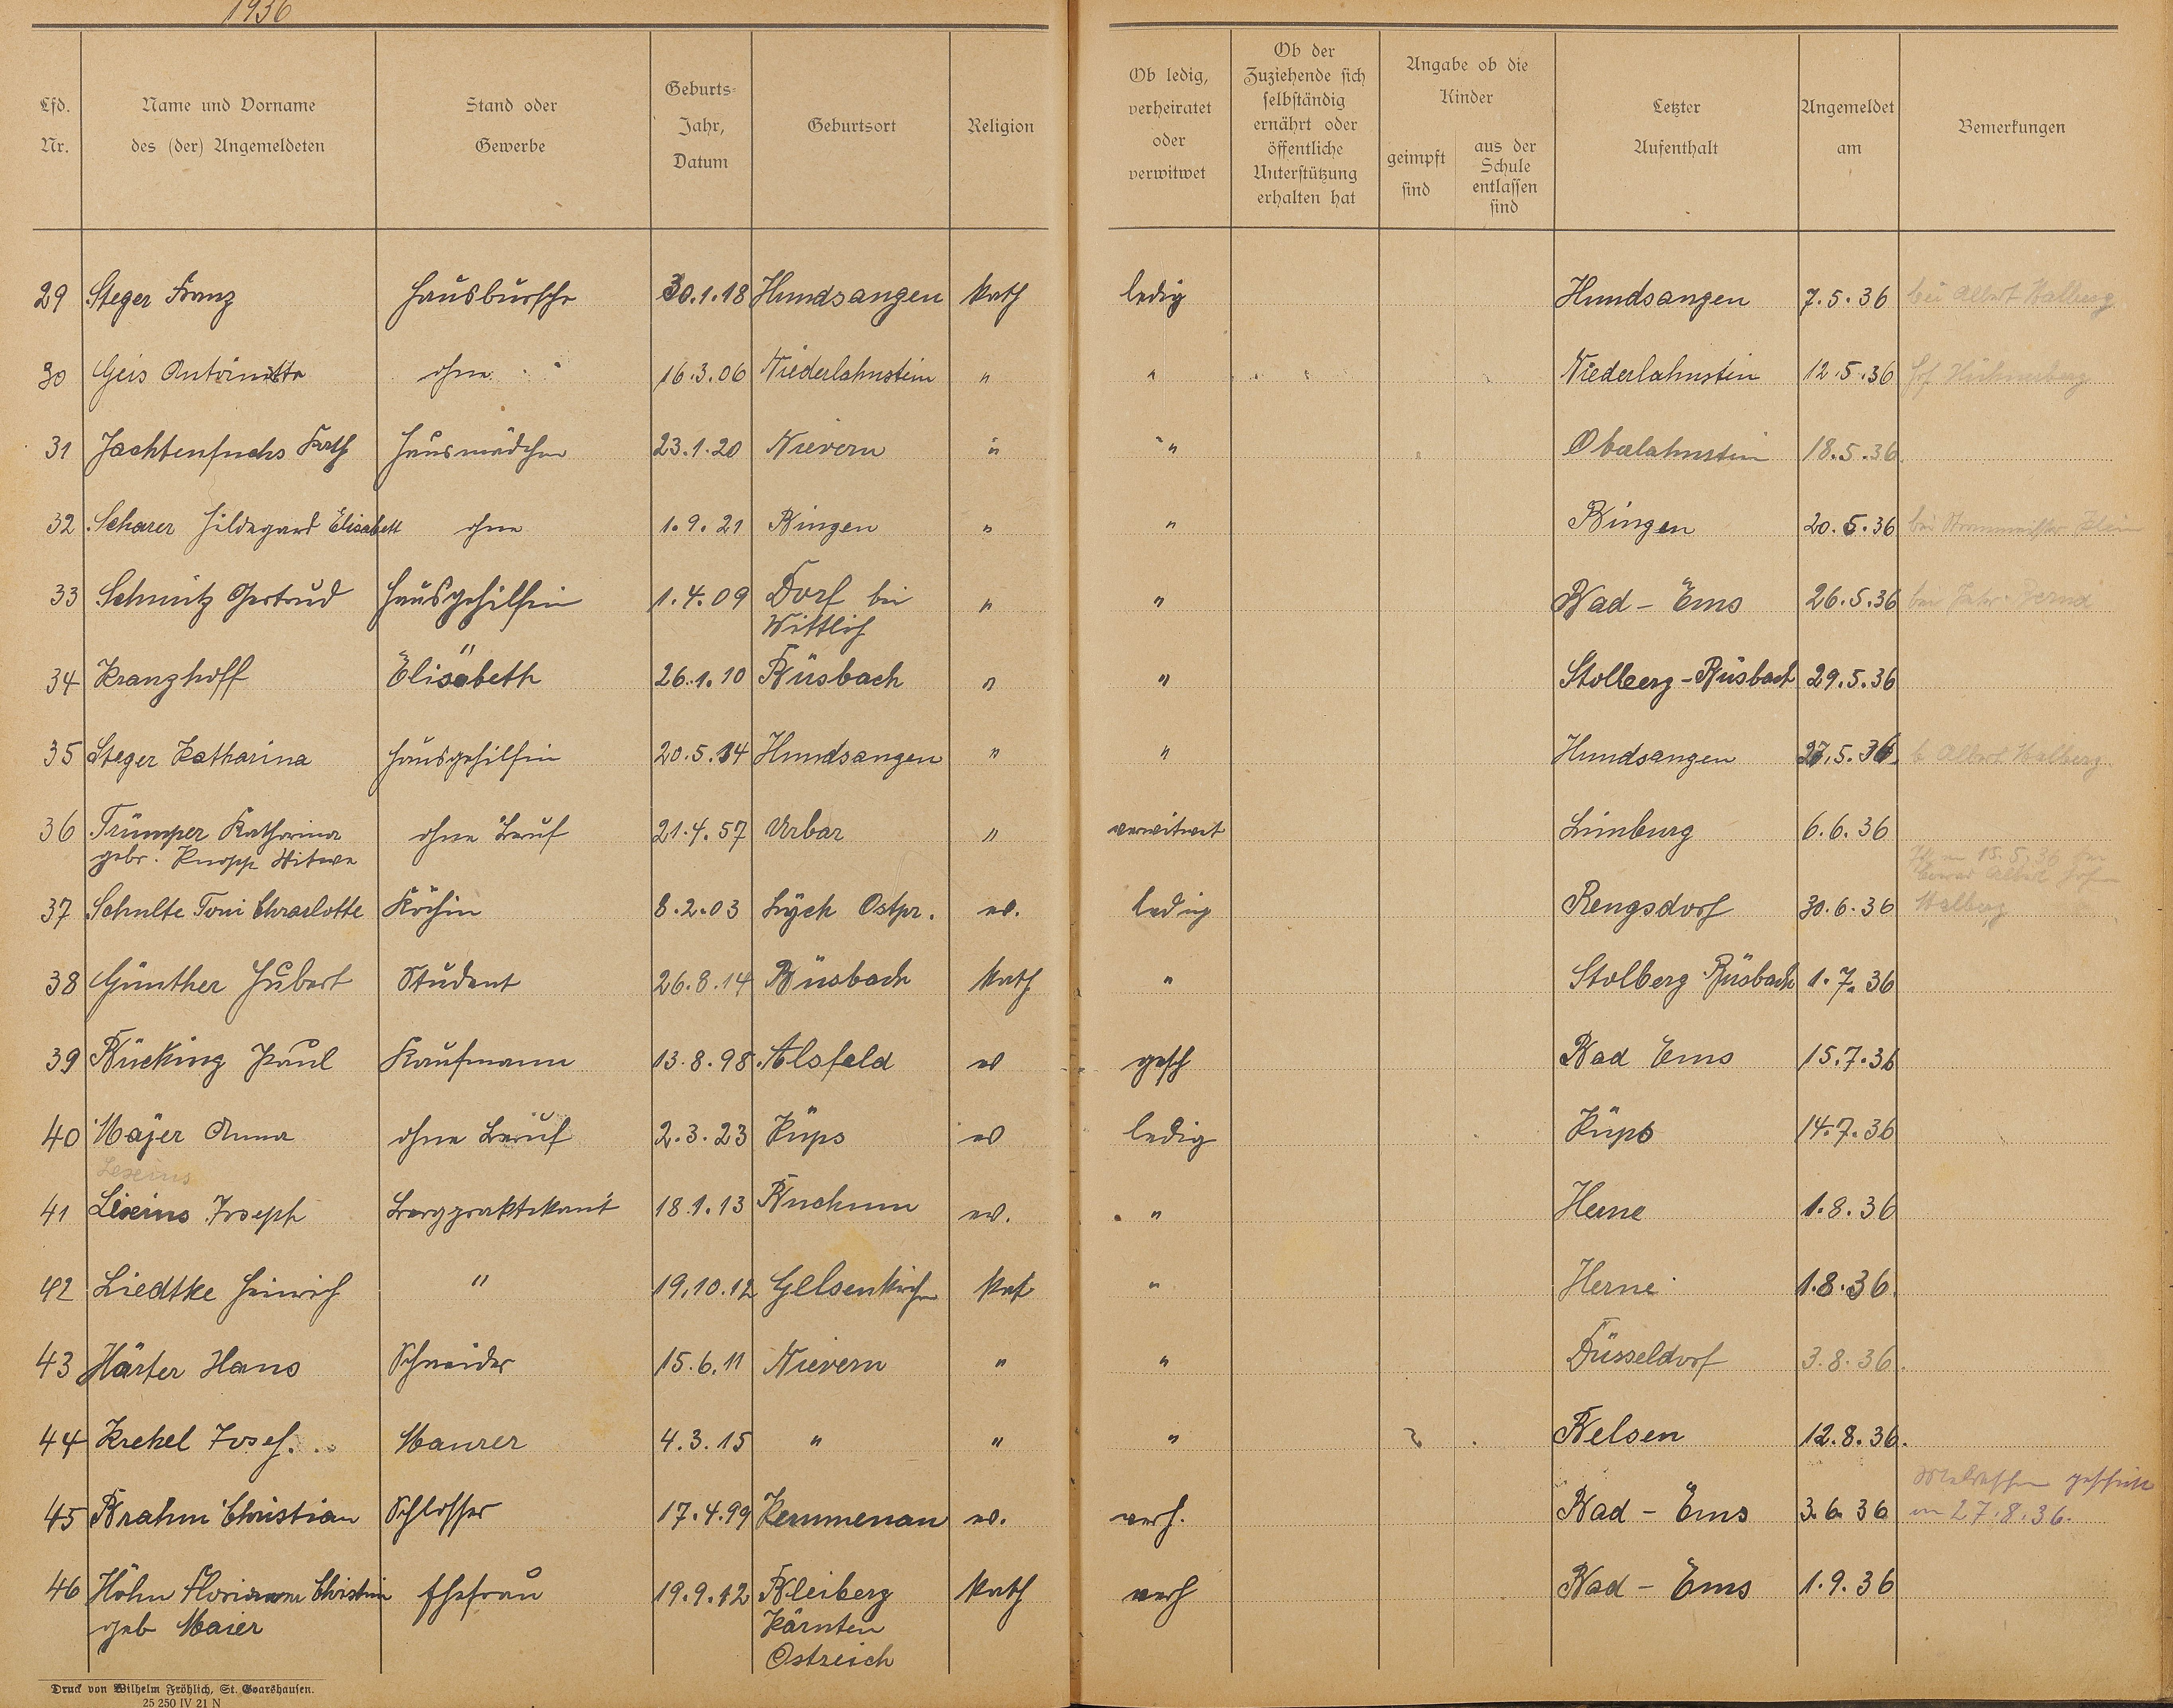 1936
Lfd. Nr.
Name und Vorname des (der) Angemeldeten
Stand oder Gewerbe
Geburts- Jahr, Datum
Geburtsort
Religion
Ob ledig, verheiratet oder verwitwet
Ob der Zuziehende sich selbständig ernährt oder öffentliche Unterstützung erhalten hat
Angabe ob die Kinder
geimpft sind
aus der Schule entlassen sind
Letzter Aufenthalt
Angemeldet am
Bemerkungen
29 Steger Franz Hausbursche 30.1.18 Hundsangen kath ledig Hundsangen 7.5.36 bei Albert Malberg
30 Geis Antoinette ohne 16.3.06 Niederlahnstein " " Niederlahnstein 12.5.36
31 Jachtenfuchs Kath Hausmädchen 23.1.20 Nievern " " Oberlahnstein 18.5.36
32 Scharer Hildegard Elisabett ohne 1.9.21 Bingen " " Bingen 20.5.36 bei
33 Schmitz Gertrud Hausgehilfin 1.4.09 Dorf bei " " Bad - Ems 26.5.36
Wittlich
34 Kranzhoff Elisabeth " 26.1.10 Büsbach " " Stolberg - Büsbach 29.5.36
35 Steger Katharina Hausgehilfin 20.5.14 Hundsangen " " Hundsangen 27.5.36. b Albert Malberg
36 Trümper Katharina ohne Beruf 21.4.57 Urbar " verwitwet Limburg 6.6.36
gebr. Knopp Witwe
37 Schulte Toni Charlotte Köchin 8.2.03 Lyck Ostpr. ev. ledig Rengsdorf 30.6.36 Malberg
38 Günther Hubert Student 26.8.14 Büsbach kath " Stolberg Büsbach 1.7.36
39 Bücking Paul Kaufmann 13.8.98 Alsfeld ev gesch Bad Ems 15.7.36
40 Majer Anna ohne Beruf 2.3.23 Küps ev ledig Küps 14.7.36
Lexius
41 Lexius Joseph Bergpraktikant 18.1.13 Bochum ev. " Herne 1.8.36
42 Liedtke Heinrich " 19.10.12 Gelsenkirchen kat " Herne 1.8.36.
43 Härter Hans Schneider 15.6.11 Nievern " " Düsseldorf 3.8.36.
44 Krekel Josef. Maurer 4.3.15 " " " Belsen 12.8.36.
45 Brahm Christian Schlosser 17.4.99 Kemmenau ev. verh. Bad - Ems 3.6.36 am 27.8.36.
46 Höhn Christin Ehefrau 19.9.12 Bleiberg kath verh Bad - Ems 1.9.36
geb Maier Kärnten
Östreich
Druck von Wilhelm Fröhlich, St. Goarshausen.
25 250 IV 21 N